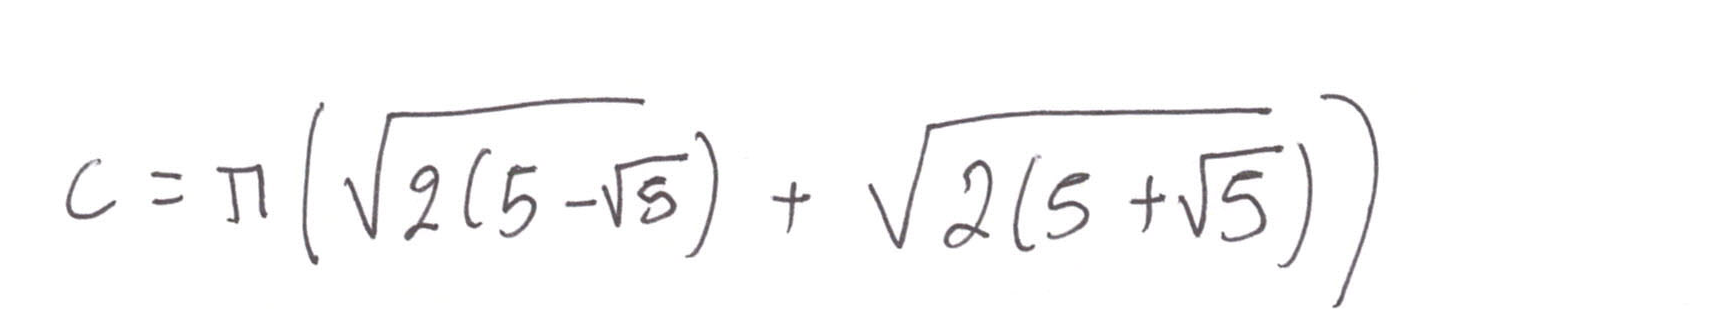 C = π(√(2(5-√5)) + √(2(5+√5)))